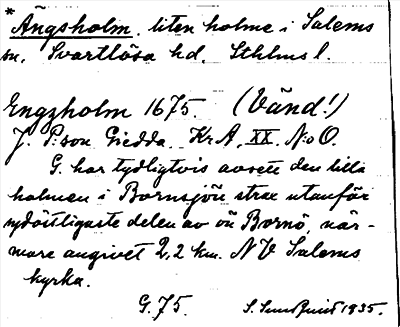 * Ängsholm, liten holme i Salems
sn, Svartlösa hd, Sthlms l.
Engzholm 1675. (Vänd!)
J. P:son Giedda. Kr A, XX. N:o O.
G. har tydligtvis avsett den lilla
holmen i Bornsjön strax utanför
sydöstligaste delen av ön Bornö, när-
mare angivet 2,2 km. NV Salems
kyrka.
G. 75. S. 1935.